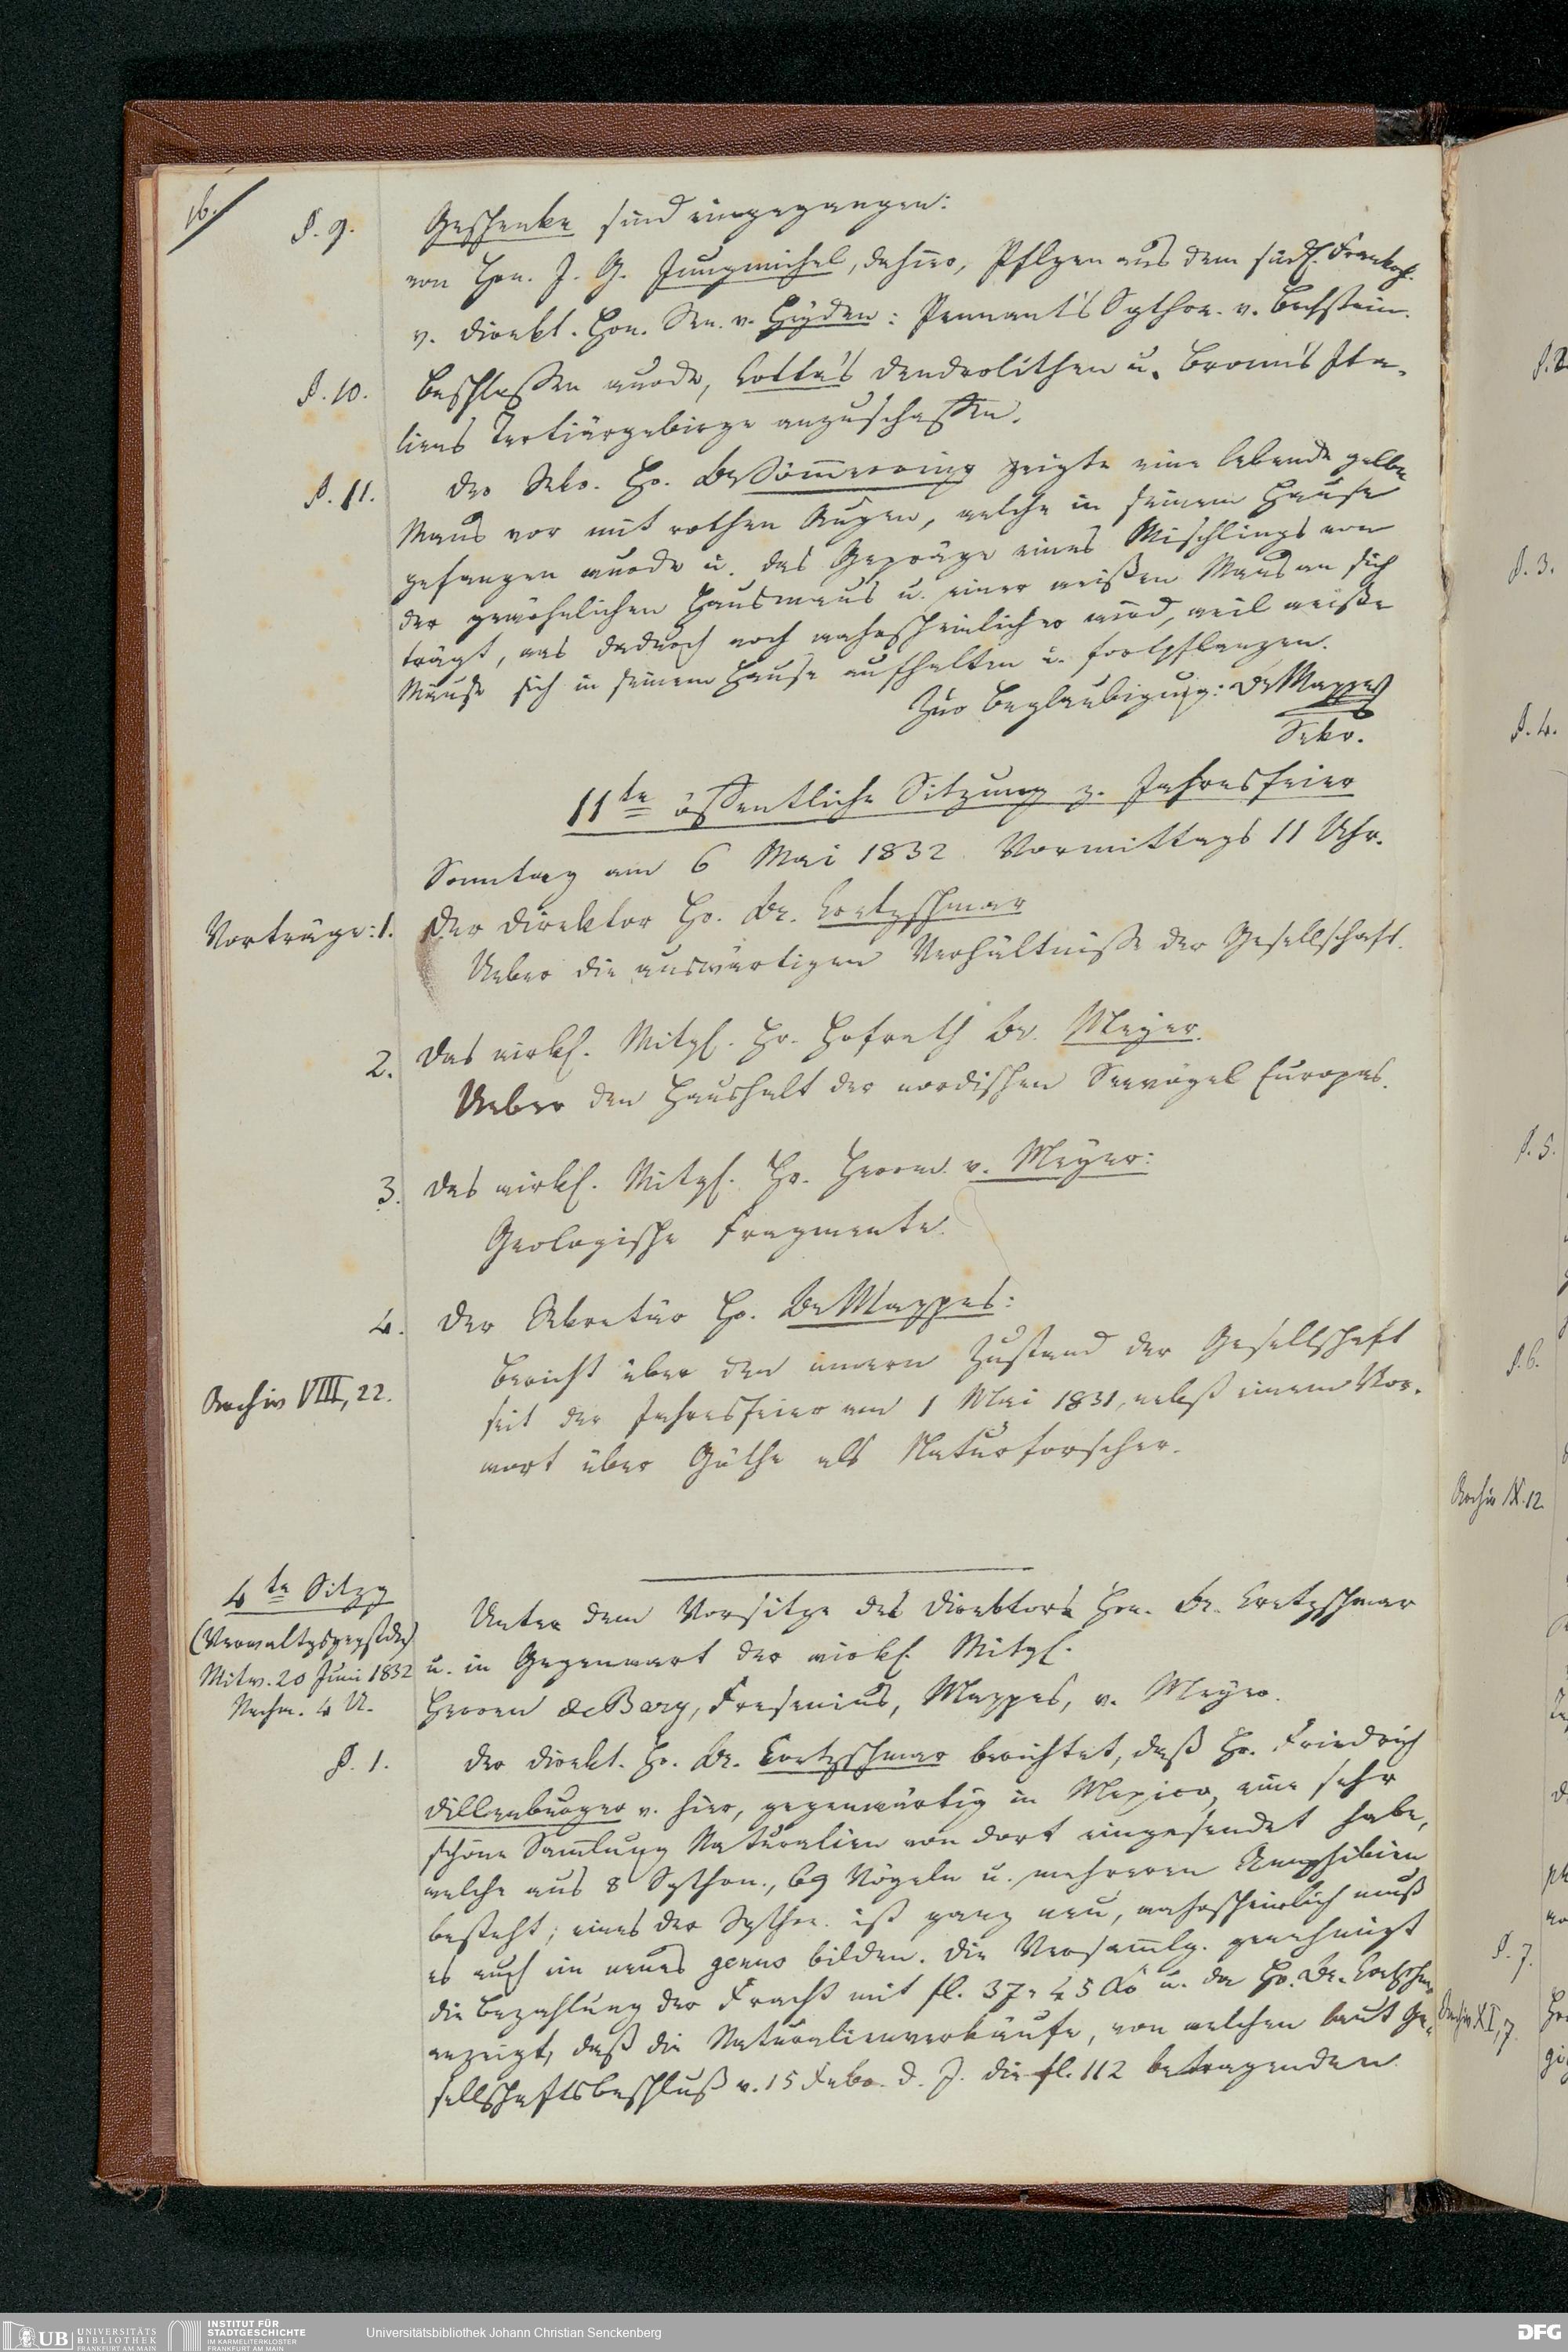 16.
§. 9. Geschenke sind eingegangen:
von Hrn. J. G. Jungmichel, dahier, Pflzen aus dem südl. Frankr.
v. Direkt. Hrn. Sen. v. Heyden: Pennant's Sgthre. v. Bechstein.
§. 10. Beschlossen wurde, Cotta's Dendrolithen u. Bronn's Ita-
liens Tertiärgebirge anzuschaffen.
§. 11. Der Sekr. Hr. Dr Sömmerring zeigte eine lebende gelbe
Maus vor mit rothen Augen, welche in seinem Hause
gefangen wurde u. das Gepräge eines Mischlings von
der gewöhnlichen Hausmaus u. einer weißen Maus an sich
trägt, was dadurch noch wahrscheinlicher wird, weil weiße
Mäuse sich in seinem Hause aufhalten u. fortpflanzen.
Zur Beglaubigung: Dr Mappes
Sekr.
11te öffentliche Sitzung z. Jahresfeier
Sonntag am 6 Mai 1832 Vormittags 11 Uhr.
Vorträge: 1. Der Direktor Hr. Dr. Cretzschmar
Ueber die auswärtigen Verhältnisse der Gesellschaft.
2. Das wirkl. Mitgl. Hr. Hofrath Dr. Meyer.
Ueber den Haushalt der nordischen Seevögel Europas.
3. Das wirkl. Mitgl. Hr. Herrm. v. Meyer:
Geologische Fragmente.
4. Der Sekretär Hr. Dr Mappes:
Bericht über den innern Zustand der Gesellschaft
Archiv VIII, 22. seit der Jahresfeier am 1 Mai 1831, nebst einem Vor-
wort über Göthe als Naturforscher.
4te Sitzg
(Verwaltgsgegstde)
Mitw. 20 Juni 1832
Nachm. 4 U.
Unter dem Vorsitze des Direktors Hrn. Dr. Cretzschmar
u. in Gegenwart der wirkl. Mitgl.
Herren de Bary, Fresenius, Mappes, v. Meyer.
§. 1. Der Direkt. Hr. Dr. Cretzschmar berichtet, daß Hr. Friedrich
Dillenburger v. hier, gegenwärtig in Mexico, eine sehr
schöne Sammlung Naturalien von dort eingesendet habe,
welche aus 8 Sgthrn., 69 Vögeln u. mehreren Amphibien
besteht; eines der Sgthre. ist ganz neu, wahrscheinlich muß
es auch ein neues genus bilden. Die Versammlg. genehmigt
die Bezahlung der Fracht mit fl. 37. 45 Xr u. da Hr. Dr. Cretzschmar
anzeigt, daß die Naturalienverkäufe, von welchen laut Ge-
sellschaftsbeschluß v. 15 Febr. d. J. die fl. 112 betragenden
§. 3.
§. 4.
§. 5.
§. 6.
Archiv IX. 12.
§. 7.
Archiv XI, 7.
UB UNIVERSITÄTS
BIBLIOTHEK
FRANKFURT AM MAIN
INSTITUT FÜR
STADTGESCHICHTE
IM KARMELITERKLOSTER
FRANKFURT AM MAIN
Universitätsbibliothek Johann Christian Senckenberg
DFG